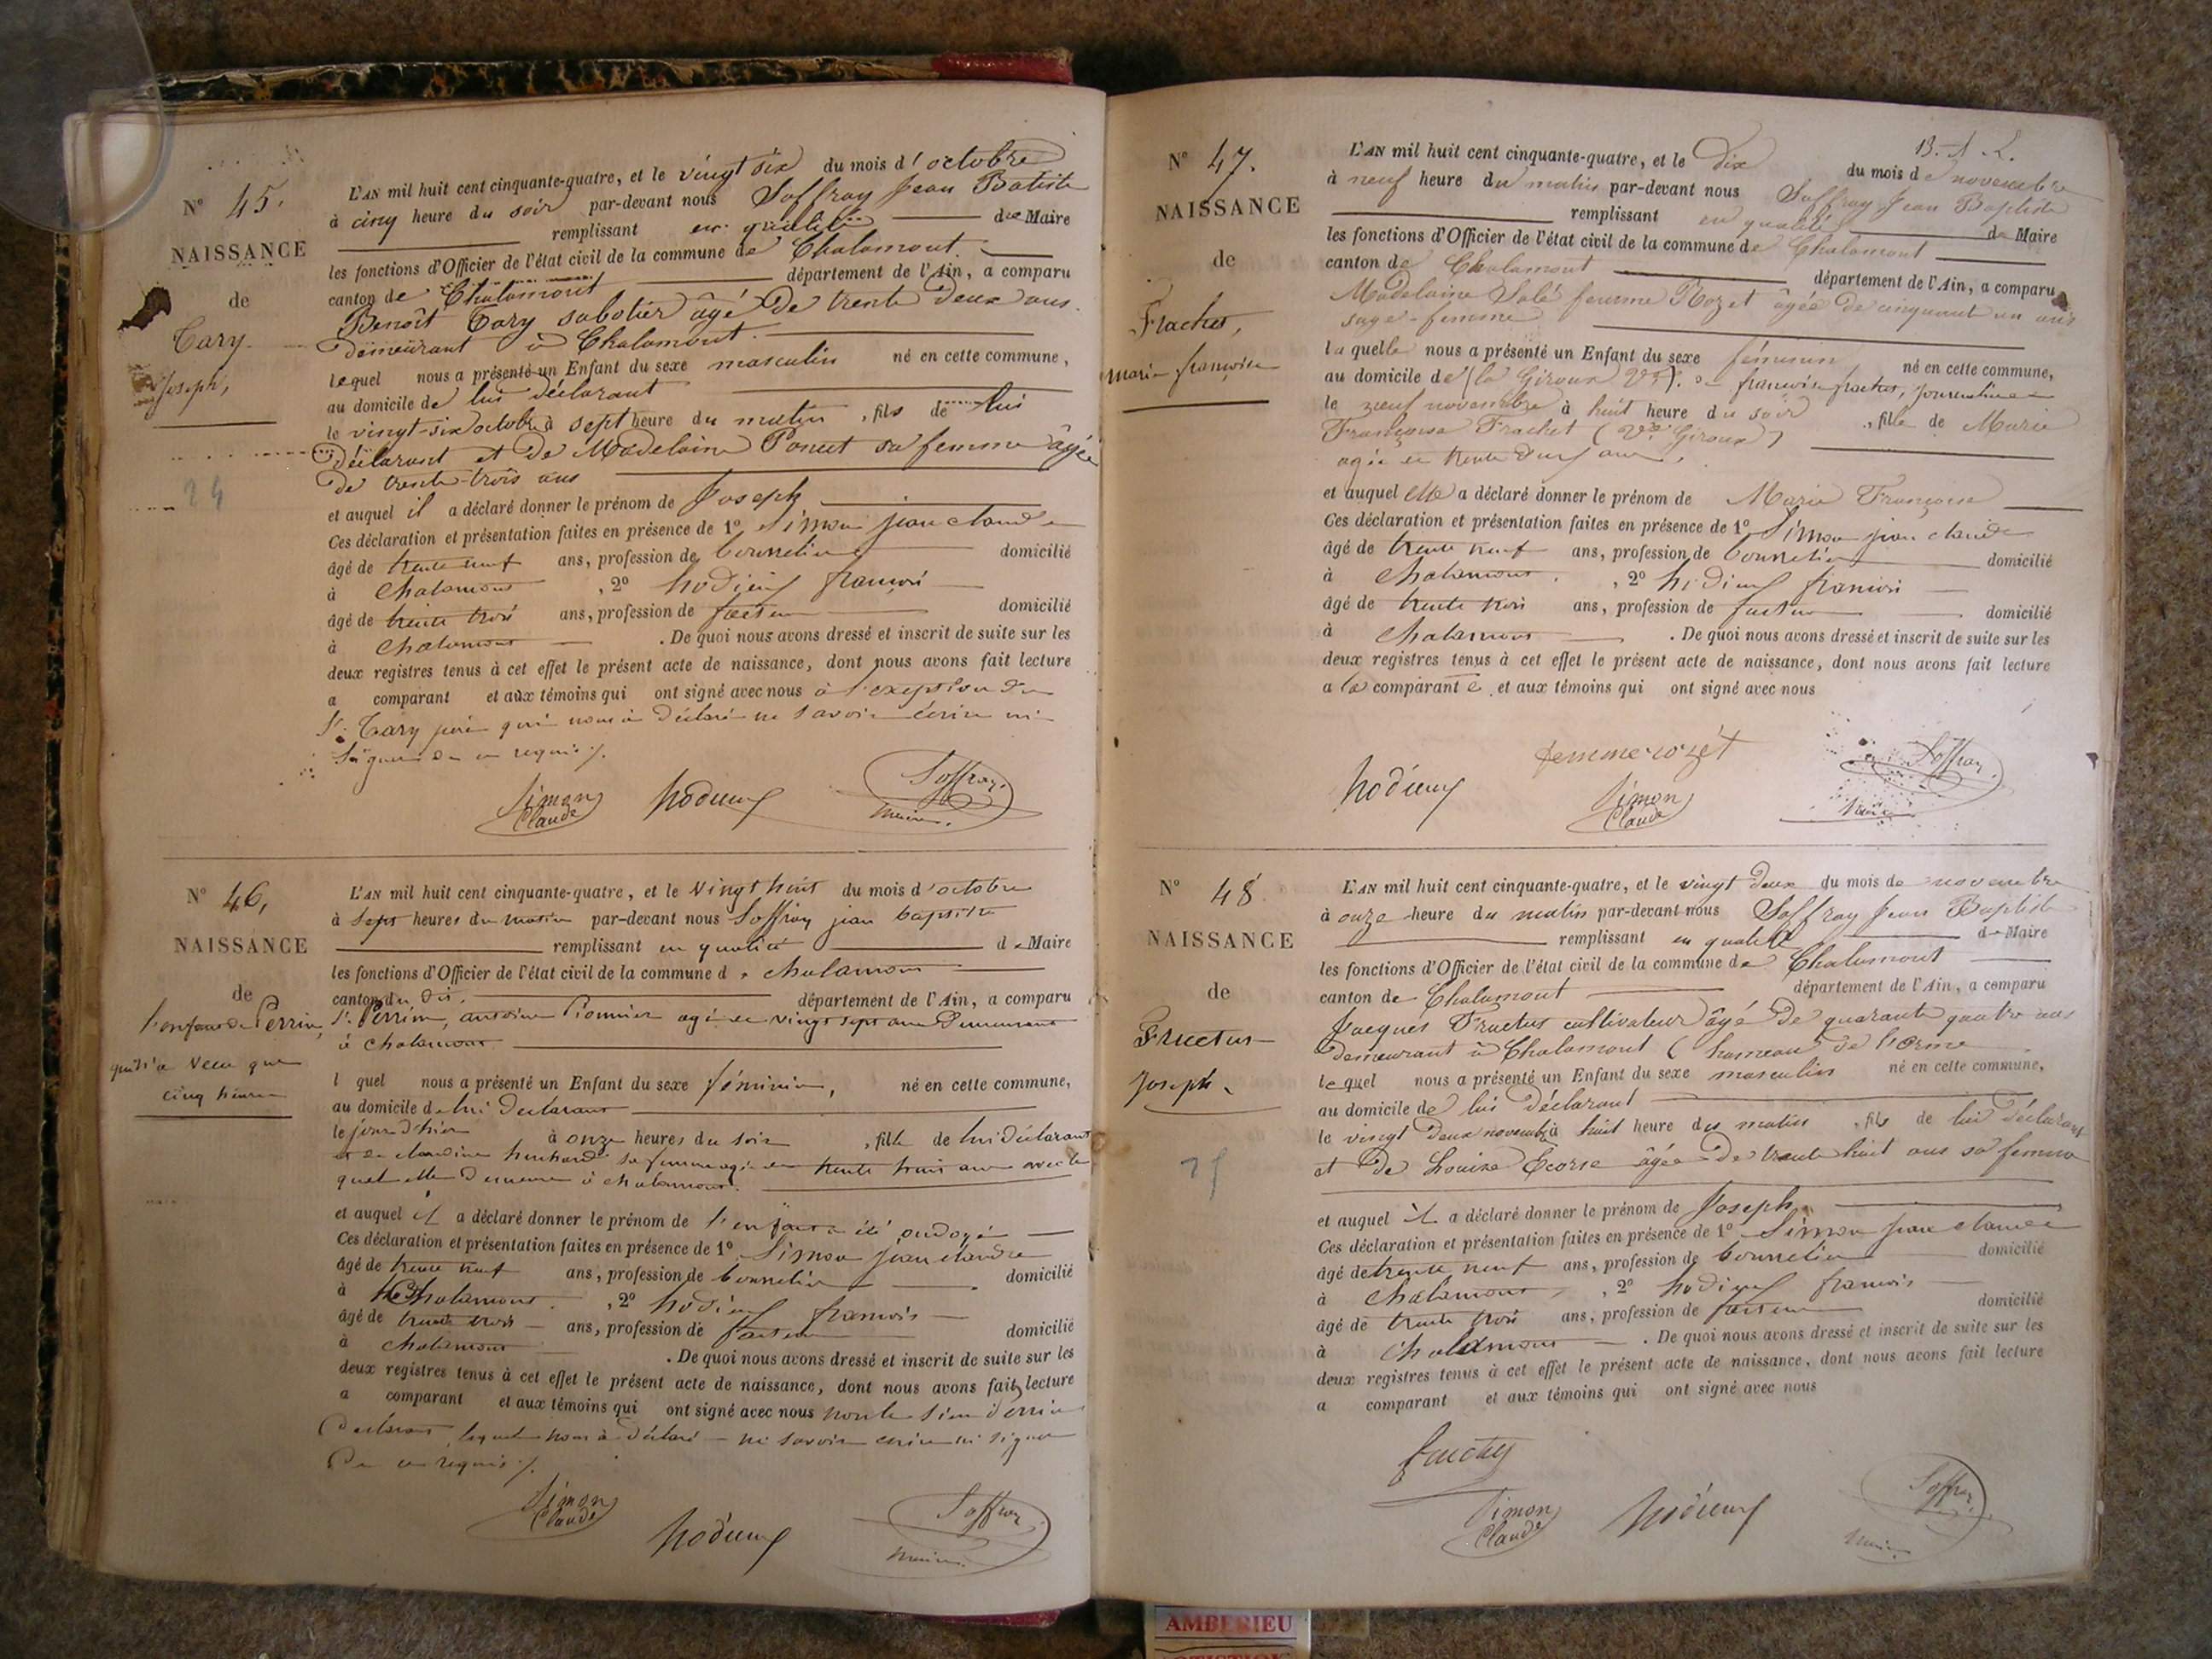 N° 45.
NAISSANCE
de
Cary
Joseph,
24
L'AN mil huit cent cinquante-quatre, et le vingt six du mois d'octobre
à cinq heure du soir par-devant nous Soffray Jean Batiste
remplissant en qualité de Maire
les fonctions d'Officier de l'état civil de la commune de Chalamont
canton de Chalamont département de l'Ain, a comparu
Benoît Cary sabotier âgé de trente deux ans
demeurant à Chalamont
lequel nous a présenté un Enfant du sexe masculin né en cette commune,
au domicile de lui déclarant
le vingt-six octobre à sept heure du matin, fils de lui
déclarant et de Madelaine Poncet sa femme âgée
de trente-trois ans
et auquel il a déclaré donner le prénom de Joseph
Ces déclaration et présentation faites en présence de 1° Simon jean claude
âgé de trente neuf ans, profession de bourrelier domicilié
à Chalamont, 2° hodieux françois
âgé de trente trois ans, profession de facteur domicilié
à Chalamont. De quoi nous avons dressé et inscrit de suite sur les
deux registres tenus à cet effet le présent acte de naissance, dont nous avons fait lecture
a comparant et aux témoins qui ont signé avec nous à l'exception du
Sr Cary père qui nous a déclaré ne savoir écrire ni
signer de ce requis ./.
Simon
Claude
hodieux
Soffray
maire.
N° 46,
NAISSANCE
de
l'enfant de Perrin,
qui n'a vecu que
cinq heures
L'AN mil huit cent cinquante-quatre, et le vingt huit du mois d'octobre
à sept heures du matin par-devant nous Soffray jean baptiste
remplissant en qualité de Maire
les fonctions d'Officier de l'état civil de la commune de chalamont
canton du dit. département de l'Ain, a comparu
Sr Perrin, antoine agé de vingt sept ans demeurant
à chalamont
l quel nous a présenté un Enfant du sexe féminin, né en cette commune,
au domicile de lui déclarant
le jour d'hier à onze heures du soir, fille de lui déclarant
et de claudine sa femme agée de trente huit ans avec le
quel elle demeure à chalamont.
et auquel il a déclaré donner le prénom de l'enfant a été ondoyé
Ces déclaration et présentation faites en présence de 1° Simon jean claude
âgé de trente neuf ans, profession de bourrelier domicilié
à Chalamont. , 2° hodieux françois
âgé de trente trois ans, profession de facteur domicilié
à chalamont. De quoi nous avons dressé et inscrit de suite sur les
deux registres tenus à cet effet le présent acte de naissance, dont nous avons fait lecture
a comparant et aux témoins qui ont signé avec nous Perrin
déclarant, lequel nous a déclaré ne savoir écrire ni signer
de ce requis ./.
Simon
Claude
hodieux
Soffray
maire.
13. 1. 2.
N° 47.
NAISSANCE
de
Frachet,
marie françoise
L'AN mil huit cent cinquante-quatre, et le dix du mois de novembre
à neuf heure du matin par-devant nous Soffray Jean Baptiste
remplissant en qualité de Maire
les fonctions d'Officier de l'état civil de la commune de Chalamont
canton de Chalamont département de l'Ain, a comparu
Madelaine Salé femme Rozet âgée de cinquant un ans
sage-femme
laquelle nous a présenté un Enfant du sexe féminin né en cette commune,
au domicile de (la Giroux Ve). de françoise frachet, journalière
le neuf novembre à huit heure du soir, fille de Marie
Françoise Frachet (Ve Giroux)
agée de trente ans,
et auquel elle a déclaré donner le prénom de Marie Françoise
Ces déclaration et présentation faites en présence de 1° Simon jean claude
âgé de trente neuf ans, profession de bourrelier domicilié
à Chalamont, 2° hodieux françois
âgé de trente trois ans, profession de facteur domicilié
à Chalamont. De quoi nous avons dressé et inscrit de suite sur les
deux registres tenus à cet effet le présent acte de naissance, dont nous avons fait lecture
a la comparante et aux témoins qui ont signé avec nous
hodieux
femme rozet
Simon
Claude
Soffray
Maire
N° 48
NAISSANCE
de
Fructus
Joseph
25
L'AN mil huit cent cinquante-quatre, et le vingt deux du mois de novembre
à onze heure du matin par-devant nous Soffray Jean Baptiste
remplissant en qualité de Maire
les fonctions d'Officier de l'état civil de la commune de Chalamont
canton de Chalamont département de l'Ain, a comparu
Jacques Fructus cultivateur âgé de quarante quatre ans
demeurant à Chalamont (hameau de l'Orme
lequel nous a présenté un Enfant du sexe masculin né en cette commune,
au domicile de lui déclarant
le vingt deux novembre à huit heure du matin, fils de lui déclarant
et de Louise Ecorse âgée de trente huit ans sa femme
et auquel il a déclaré donner le prénom de Joseph
Ces déclaration et présentation faites en présence de 1° Simon jean claude
âgé de trente neuf ans, profession de bourrelier domicilié
à Chalamont, 2° hodieux françois
âgé de trente trois ans, profession de facteur domicilié
à Chalamont. De quoi nous avons dressé et inscrit de suite sur les
deux registres tenus à cet effet le présent acte de naissance, dont nous avons fait lecture
a comparant et aux témoins qui ont signé avec nous
Simon
Claude
hodieux
Soffray
maire
AMBERIEU